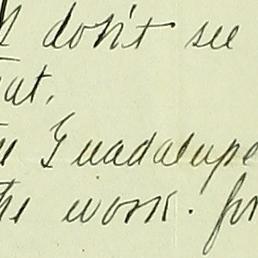 don't see
Guadalupe
the work. for